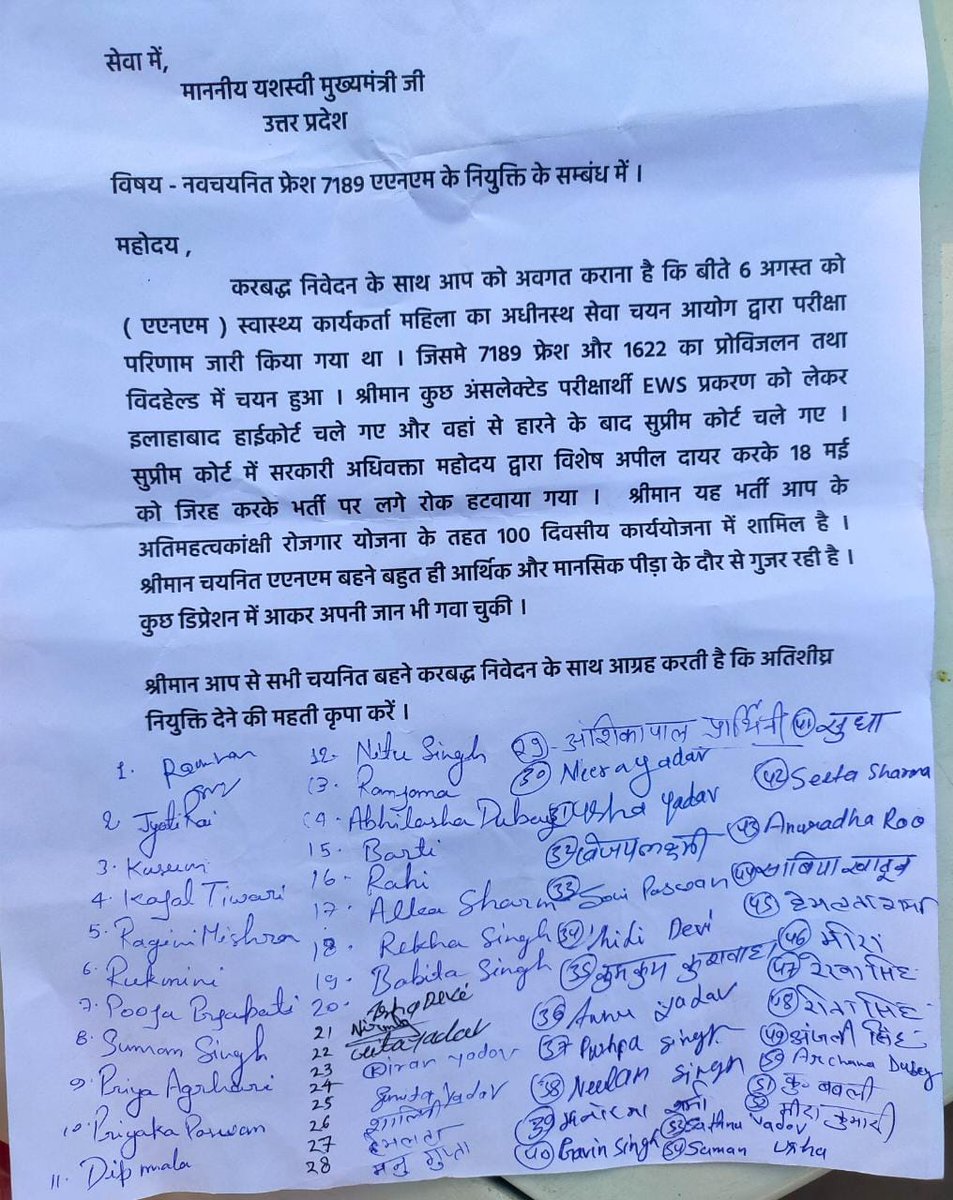 सेवा में,
माननीय यशस्वी मुख्यमंत्री जी
उत्तर प्रदेश
विषय - नवचयनित फ्रेश 7189 एएनएम के नियुक्ति के सम्बंध में ।
महोदय ,
करबद्ध निवेदन के साथ आप को अवगत कराना है कि बीते 6 अगस्त को
( एएनएम ) स्वास्थ्य कार्यकर्ता महिला का अधीनस्थ सेवा चयन आयोग द्वारा परीक्षा
परिणाम जारी किया गया था । जिसमे 7189 फ्रेश और 1622 का प्रोविजलन तथा
विदहेल्ड में चयन हुआ । श्रीमान कुछ अंसलेक्टेड परीक्षार्थी EWS प्रकरण को लेकर
इलाहाबाद हाईकोर्ट चले गए और वहां से हारने के बाद सुप्रीम कोर्ट चले गए ।
सुप्रीम कोर्ट में सरकारी अधिवक्ता महोदय द्वारा विशेष अपील दायर करके 18 मई
को जिरह करके भर्ती पर लगे रोक हटवाया गया । श्रीमान यह भर्ती आप के
अतिमहत्वकांक्षी रोजगार योजना के तहत 100 दिवसीय कार्ययोजना में शामिल है ।
श्रीमान चयनित एएनएम बहने बहुत ही आर्थिक और मानसिक पीड़ा के दौर से गुजर रही है ।
कुछ डिप्रेशन में आकर अपनी जान भी गवा चुकी ।
श्रीमान आप से सभी चयनित बहने करबद्ध निवेदन के साथ आग्रह करती है कि अतिशीघ्र
नियुक्ति देने की महती कृपा करें ।
1.
2. Jyoti Rai
3. Kusum
4. Kajal Tiwari
5. Ragini Mishra
6. Rukmini
7. Pooja Prjapati
8. Suman Singh
9. Priya Agrhari
10. Priyaka Paswan
11. Dip mala
12. Nitu Singh
13. Ranjama
14. Abhilasha Dubey
15. Barti
16. Rahi
17. Alka Sharm
18. Rekha Singh
19. Babita Singh
20. Devi
21
22 Yadav
23 Kiran yadav
24 Yadav
25 शालिनी
26 हेमलता
27 मनु गुप्ता
28
29 अंशिका पाल प्रार्थिनी
30 Neera yadav
31 Usha Yadav
32 विजयलक्ष्मी
33 Soni Paswan
34 Nidi Devi
35 कुमकुम कुशवाहा
36 Annu yadav
37 Pushpa Singh
38 Neelam Singh
39 मनोरमा वर्मा
40 Singh
41 सुधा
42 Seeta Sharma
43 Anuradha Rao
44 साबिया खातून
45 हेमलता शर्मा
46 मीरा
47 रेखा सिंह
48 सिंह
49 अंजली सिंह
50 Archana Dubey
51 कु बबली
52 मीरा कुमारी
53 Yadav
54 Suman Usha